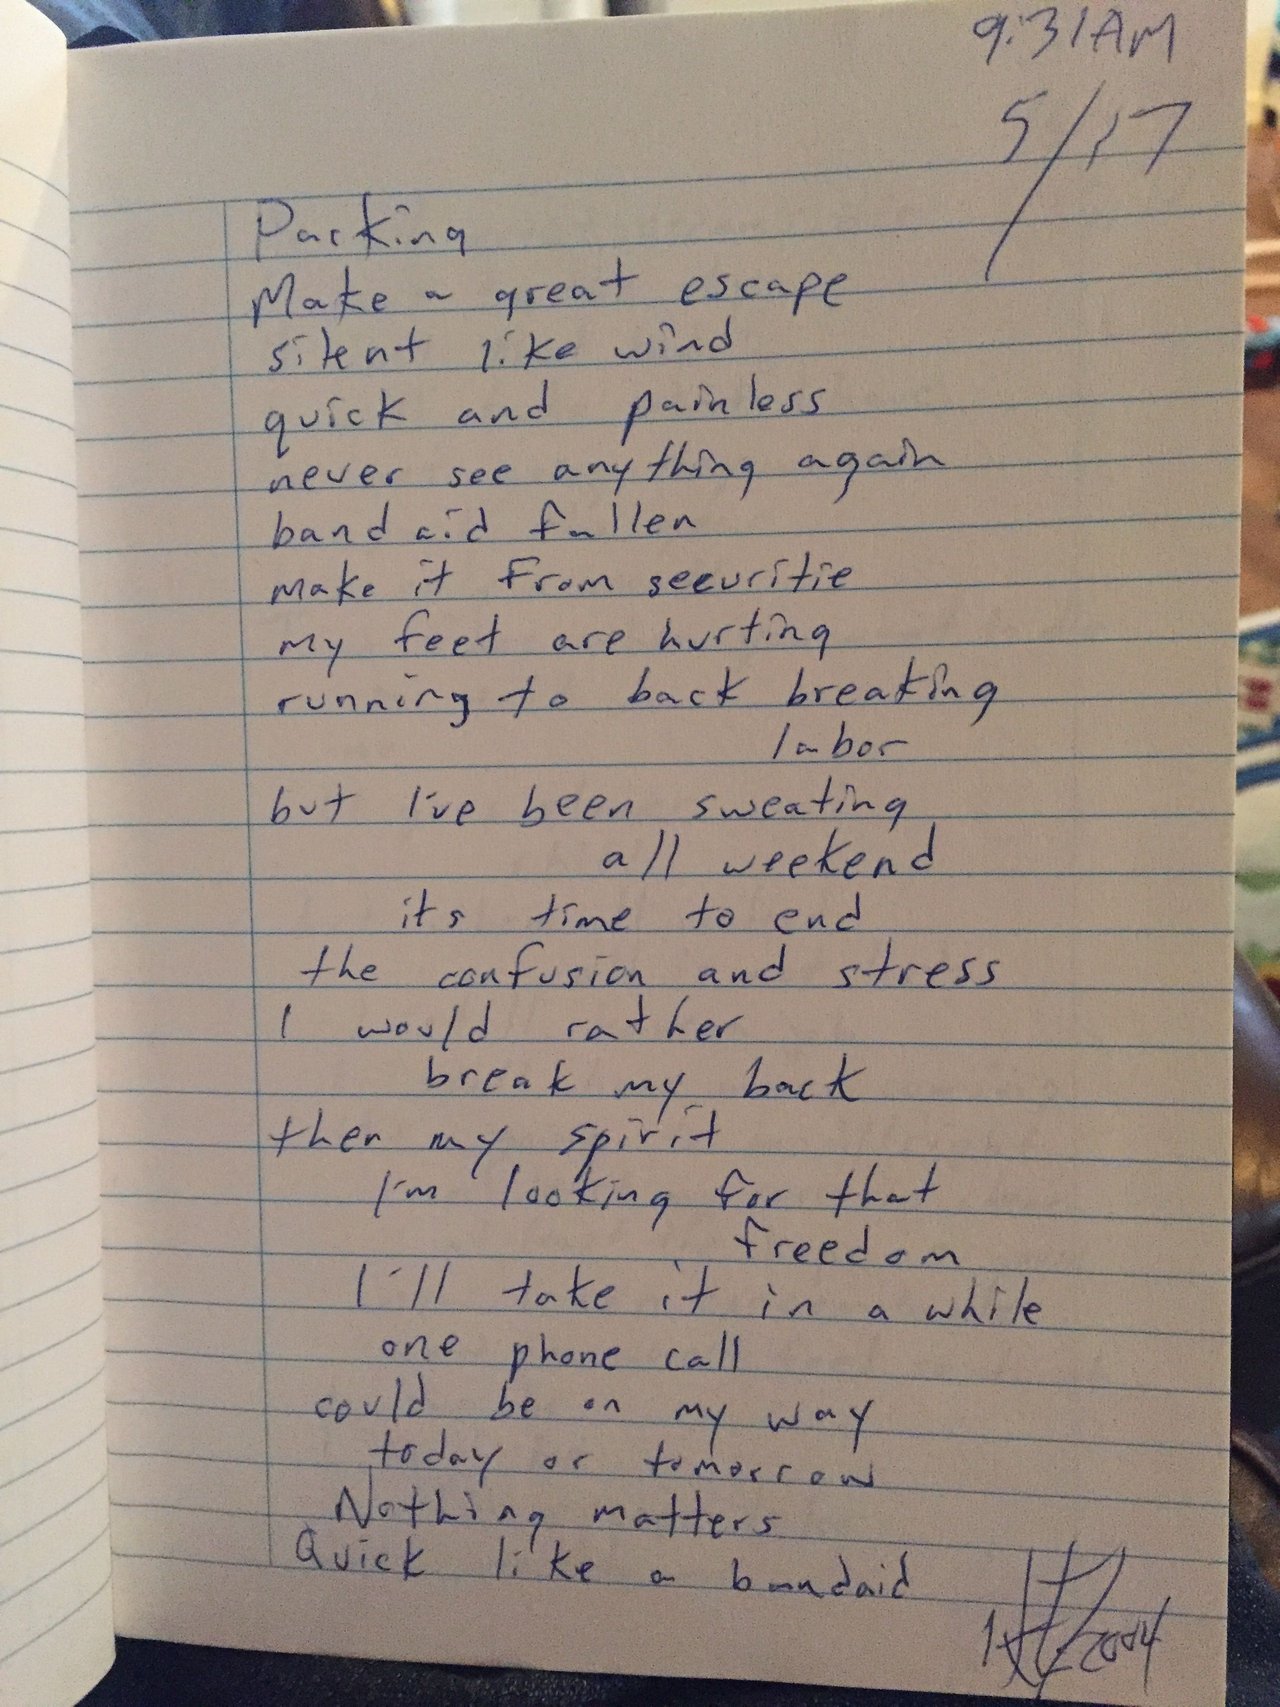 9:31AM
5/17
Parking
Make a great escape
silent like wind
quick and painless
never see anything again
band aid fallen
make it from securitie
my feet are hurting
running to back breaking
labor
but I've been sweating
all weekend
its time to end
the confusion and stress
I would rather
break my back
then my spirit
I'm looking for that
freedom
I'll take it in a while
one phone call
could be on my way
today or tomorrow
Nothing matters
Quick like a bandaid
2004